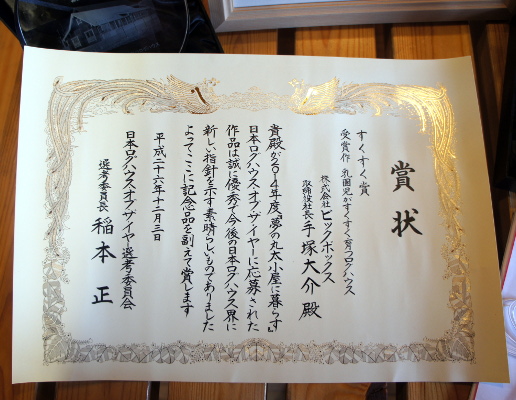 賞状
すくすく賞
受賞作 乳園児がすくすく育つログハウス
株式会社ビックボックス
取締役社長 手塚大介 殿
貴殿が2014年度『夢の丸太小屋に暮らす』
日本ログハウスオブザイヤーに応募された
作品は誠に優秀で今後の日本ログハウス界に
新しい指針を示す素晴らしいものでありました
よってここに記念品を副えて賞します
平成二十六年十二月三日
日本ログハウスオブザイヤー選考委員会
選考委員長 稲本 正